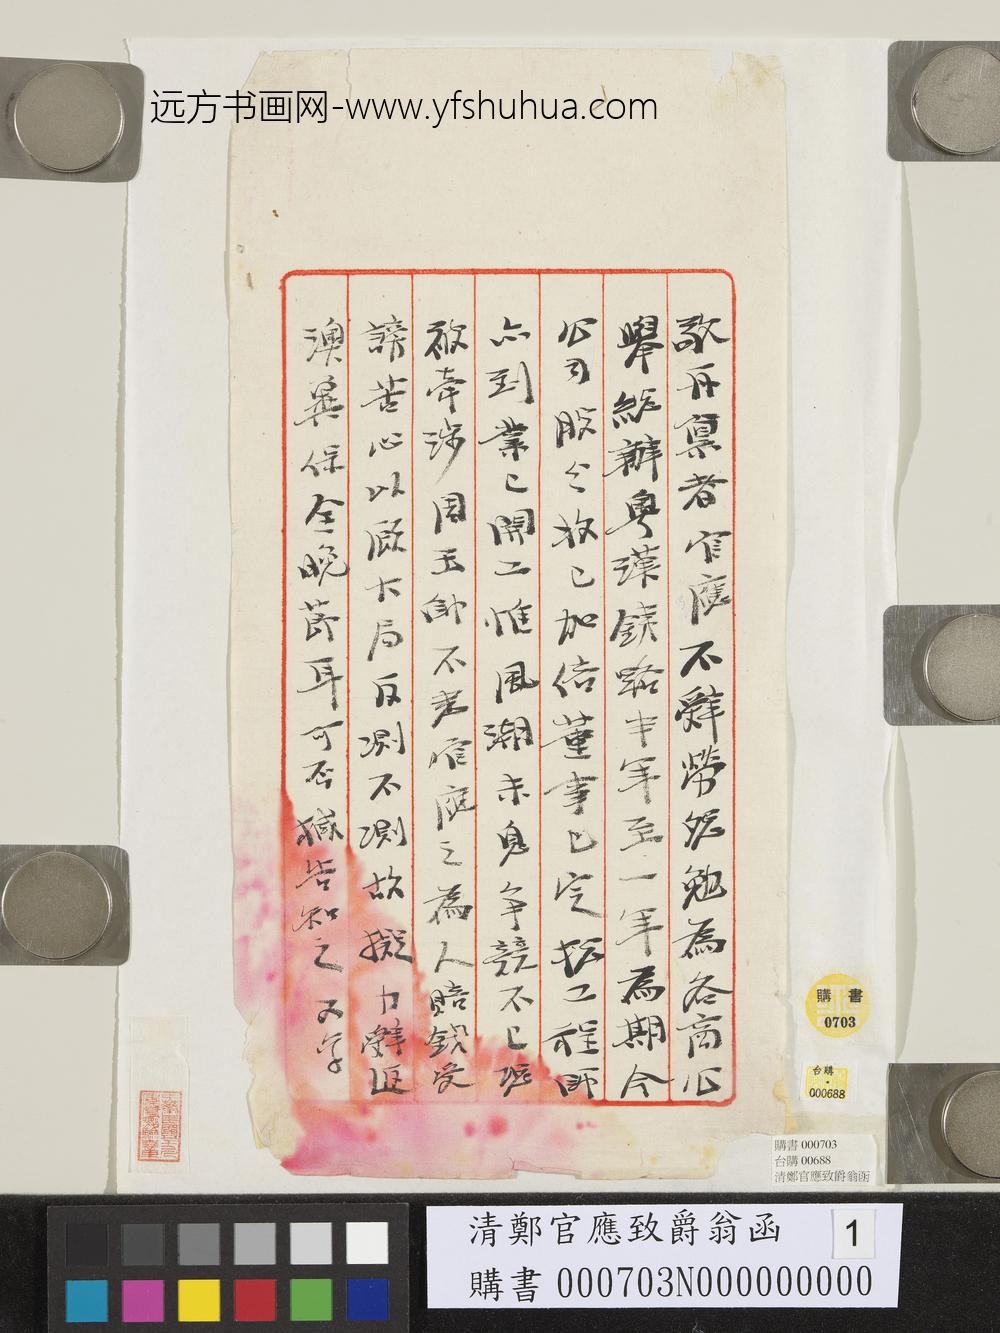 远方书画网-www.yfshuhua.com
敬再稟者官應不辭勞怨勉為各商公
舉總辦粵漢鐵路半年至一年為期今
公司股已加倍董事已定工程師
亦到業已開工惟風潮未息爭競不已
被牽涉周玉帥不意官應之為人賠錢受
謗苦心以厰卡局反測不測故擬力辭返
澳冀保全晚節耳可否緘告知之又字
購書
0703
台購
000688
購書 000703
台購 00688
清鄭官應致爵翁函
清鄭官應致爵翁函 1
購書 000703N000000000